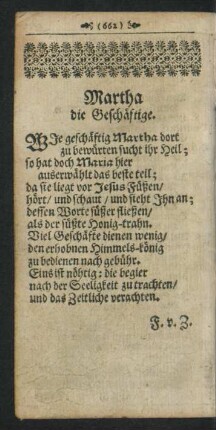 (662)
Martha
die Geschäftige.
WJe geschäftig Martha dort
zu bewürten sucht ihr Heil;
so hat doch Maria hier
auserwählt das beste teil;
da sie liegt vor Jesus Füßen/
hört/ und schaut/ und sieht Jhn an;
dessen Worte süßer fließen/
als der süßte Honig-trahn.
Viel Geschäfte dienen wenig/
den erhobnen Himmels-könig
zu bedienen nach gebühr.
Eins ist nöhtig: die begier
nach der Seeligkeit zu trachten/
und das Zeitliche verachten.
F. v. Z.